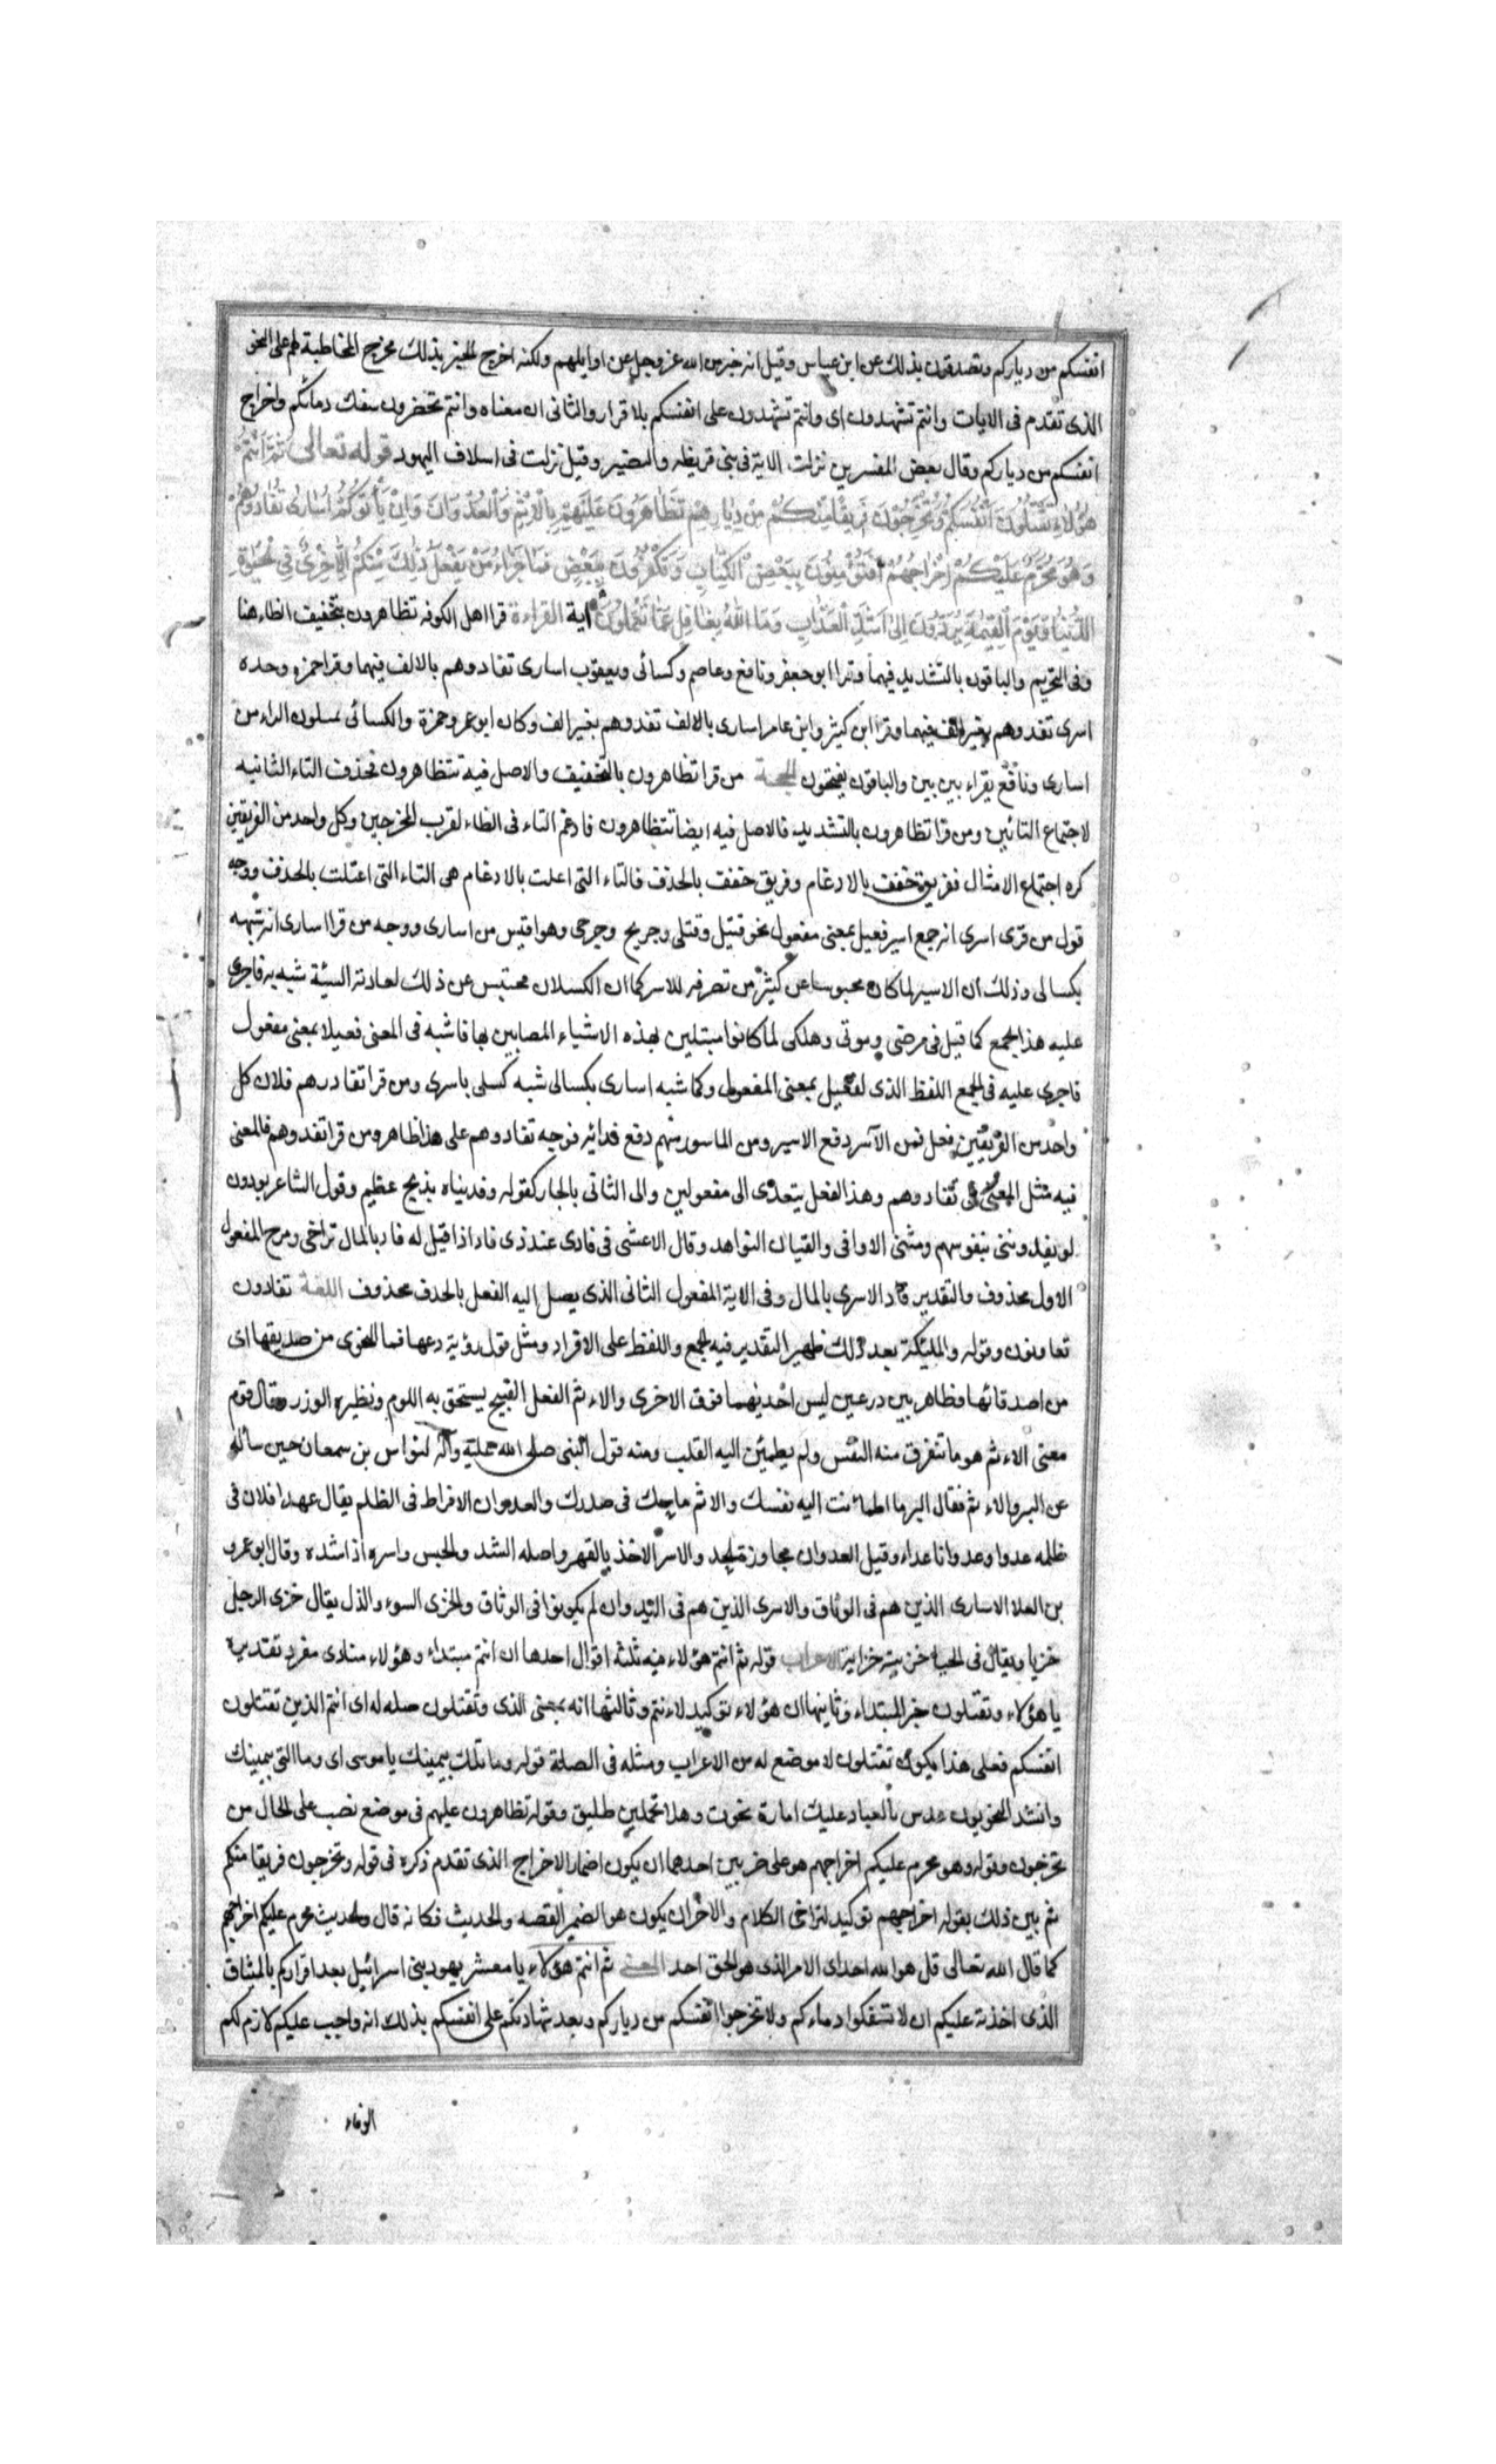 انفسكم من دياركم وتصدقون بذلك عن ابن عباس وقيل انه خبر من الله عز وجل عن اوايلهم ولكنه اخرج الخبر بذلك مخرج المخاطبة لهم على النحو
الذى تقدم فى الايات وانتم تشهدون اى وانتم تشهدون على انفسكم بلاقرار والثانى ان معناه وانتم تحضرون سفك دمائكم واخراج
انفسكم من دياركم وقال بعض المفسرين نزلت الاية فى بنى قريظه والنضير وقيل نزلت فى اسلاف اليهود قوله تعالى ثُمَّ اَنْتُمْ
هٰؤُلاءِ تَقْتُلُونَ اَنْفُسَكُمْ وَتُخْرِجُونَ فَرِيقًا مِنْكُمْ مِنْ دِيَارِهِمْ تَظَاهَرُونَ عَلَيْهِمْ بِالْاِثْمِ وَالْعُدْوَانِ وَاِنْ يَأْتُوكُمْ اُسَارٰى تُفَادُوهُمْ
وَهُوَ مُحَرَّمٌ عَلَيْكُمْ اِخْرَاجُهُمْ اَفَتُؤْمِنُونَ بِبَعْضِ الْكِتَابِ وَتَكْفُرُونَ بِبَعْضٍ فَمَا جَزَاءُ مَنْ يَفْعَلُ ذٰلِكَ مِنْكُمْ اِلَّا خِزْىٌ فِى الْحَيٰوةِ
الدُّنْيَا وَيَوْمَ الْقِيٰمَةِ يُرَدُّونَ اِلٰى اَشَدِّ الْعَذَابِ وَمَا اللّٰهُ بِغَافِلٍ عَمَّا تَعْمَلُونَ اية القراءة قرا اهل الكوفه تظاهرون بتخفيف الظاء هنا
وفى التحريم والباقون بالتشديد فيهما وقرا ابو جعفر ونافع وعاصم وكسائى ويعقوب اسارى تفادوهم بالالف فيهما وقرا حمزه وحده
اسرى تفدوهم بغير الف فيهما وقرا ابن كيثر وابن عامر اسارى بالالف تفدوهم بغير الف وكان ابو عمرو حمزة والكسائى يميلون الراء من
اسارى ونافع يقراء بين بين والباقون يفتحون الحجة من قرا تظاهرون بالتخفيف والاصل فيه تتظاهرون فحذف التاء الثانيه
لاجتماع التائين ومن قرا تظاهرون بالتشديد فالاصل فيه ايضا تتظاهرون فادغم التاء فى الظاء لقرب المخرجين وكل واحد من الفريقين
كره اجتماع الامثال ففريق خفف بالادغام وفريق خفف بالحذف فالتاء التى اعلت بالادغام هى التاء التى اعتلت بالحذف ووجه
قول من قرى اسرى انه جمع اسير فعيل بمعنى مفعول نحو قتيل وقتلى وجريح وجرحى وهو اقيس من اسارى ووجه من قرا اسارى انه شبهه
بكسالى وذلك ان الاسير لما كان محبوسا عن كيثر من تصرفه للاسر كما ان الكسلان محتبس عن ذلك لعادته السيئة شبه به فاجرى
عليه هذا الجمع كما قيل فى مرضى وموتى وهلكى لما كانوا مبتلين بهذه الاشياء المصابين بها فاشبه فى المعنى فعيلا بمعنى مفعول
فاجرى عليه فى الجمع اللفظ الذى لفعيل بمعنى المفعول وكما شبه اسارى بكسالى شبه كسلى باسرى ومن قرا تفادوهم فلان كل
واحد من الفريقين فعل فمن الآسر دفع الاسير ومن الماسور منهم دفع فدائه فوجه تفادوهم على هذا ظاهر ومن قرا تفدوهم فالمعنى
فيه مثل المعنى فى تفادوهم وهذا الفعل يتعدى الى مفعولين والى الثانى بالجار كقوله وفديناه بذبح عظيم وقول الشاعر يودون
لو يفدوننى بنفوسهم ومثنى الاواقى والقيان النواهد وقال الاعشى فى فادى عند ذى فاد اذا قيل له فاد بالمال تراخى ومرح المفعول
الاول محذوف والتقدير فاد الاسرى بالمال وفى الاية المفعول الثانى الذى يصل اليه الفعل بالحدف محذوف اللغة تفادون
تعاونون وقوله والمليٓكة بعد ذلك ظهير التقدير فيه الجمع واللفظ على الافراد ومثل قول رؤية دعها فما النحوى من صديقها اى
من اصدقائها وظاهر بين درعين ليس احديهما فوق الاخرى والاءثم الفعل القبيح يستحق به اللوم ونظيره الوزر وقال قوم
معنى الاءثم هو ما تنفرق منه النفس ولم يطمئن اليه القلب ومنه قول النبى صلى الله عليه وآله لنواس بن سمعان حين ساله
عن البر والاءثم فقال البر ما اطمانت اليه نفسك والاثم ما حك فى صدرك والعدوان الافراط فى الظلم يقال عهدا فلان فى
ظلمه عدوا وعدوانا عداء وقيل العدوان مجاوزة الحد والاسر الاخذ بالقهر واصله الشد والحبس واسره اذا شده وقال ابو عمرو
بن العلا الاسارى الذين هم فى الوثاق والاسرى الذين هم فى اليد وان لم يكونوا فى الوثاق والخزى السوء والذل يقال خزى الرجل
خزيا ويقال فى الحياء خزيته خزاية الاعراب قوله ثم انتم هؤلاء فيه ثلثة اقوال احدها ان انتم مبتداء وهؤلاء منادى مفرد تقديره
يا هؤلاء وتقتلون خبر المبتداء وثاينها ان هؤلاء توكيد لانتم وثالثها انه بمعنى الذى وتقتلون صله له اى انتم الذين تقتلون
انفسكم فعلى هذا يكون تقتلون لا موضع له من الاعراب ومثله فى الصلة قوله وما تلك بيمينك يا موسى اى وما التى بيمينك
وانشد النحويون عدس ما لعباد عليك امارة نحوت وهذا تحملين طليق وقوله تظاهرون عليهم فى موضع نصب على الحال من
تخرجون وقوله وهو محرم عليكم اخراجهم هو على ضربين احدهما ان يكون اضمار الاخراج الذى تقدم ذكره فى قوله وتخرجون فريقا منكم
ثم بين ذلك بقوله اخراجهم توكيد لتراخى الكلام والاخر ان يكون هو الضمير القصه والحديث فكانه قال والحديث محرم عليكم اخراجهم
كما قال الله تعالى قل هو الله احد اى الامر الذى هو الحق احد المعنى ثم انتم هؤلاء يا معشر يهود بنى اسرائيل بعد اقراركم بالميثاق
الذى اخذته عليكم ان لا تسفكوا دماءكم ولا تخرجوا انفسكم من دياركم وبعد شهادتكم على انفسكم بذلك انه واجب عليكم لازم لكم
الوفاء